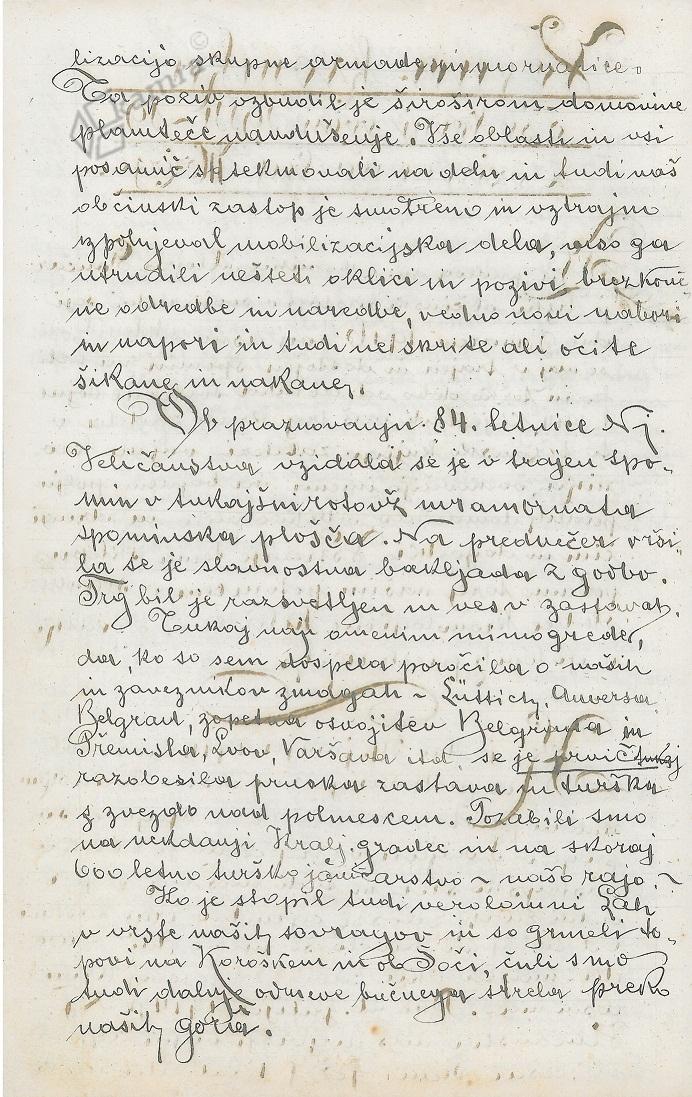 lizacijo skupne armade in mornarice.
Ta poziv vzbudil je široširom domovine
plamteče navdušenje. Vse oblasti in vsi
posamič so tekmovali na delu in tudi naš
občinski zastop je smotreno in vztrajno
izpolnjeval mobilizacijska dela, niso ga
utrudili nešteti oklici in pozivi brezkonč
ne odredbe in naredbe, vedno novi nabori
in napori in tudi ne skrite ali očite
šikane in nakane.
Ob praznovanju 84. letnice Nj.
Veličanstva vzidala se je v trajen spo-
min v tukajšni rotovž mramornata
spominska plošča. Na predvečer vrši-
la se je slavnostna bakljada z godbo.
Trg bil je razsvetljen in ves v zastavah.
Tukaj naj omenim mimogrede,
da, ko so sem dospela poročila o naših
in zaveznikov zmagah - Lüttich, Anversa
Belgrad, zopetna osvojitev Belgrada in
Přemisla, Lvov, Varšava itd. se je prvič tukaj
razobesila pruska zastava in turška
z zvezdo nad polmescem. Pozabili smo
na nekdanji Kralj. gradec in na skoraj
600 letno turško janičarstvo - našo rajo. -
Ko je stopil tudi verolomni Lah
v vrste naših sovragov in so grmeli to-
povi na Koroškem in ob Soči, čuli smo
tudi daljne odmeve bučnega strela preko
naših gora.
Kamra ©